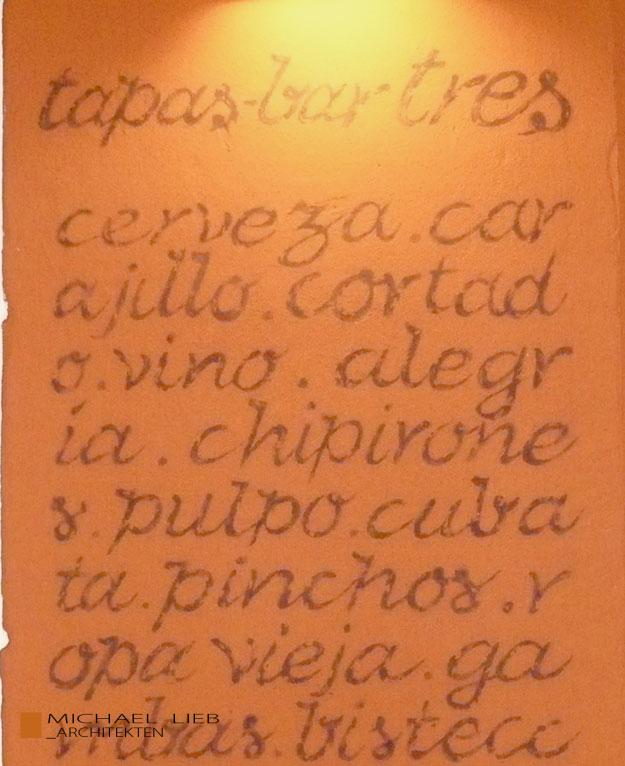 tapas-bar-tres
cerveza.car
ajillo.cortad
o.vino.alegr
ia.chipirone
s.pulpo.cuba
ta.pinchos.r
opa vieja.ga
mbas.bistecc
MICHAEL LIEB
_ARCHITEKTEN